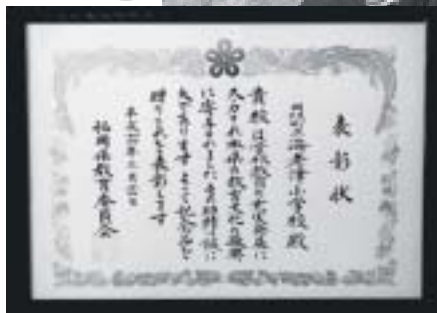 表彰状
海老津小学校殿
貴校は学校教育の充実発展に
尽力され本県の教育文化の振興
に寄与されました その功績は
であります よって記念品を
贈りこれを表彰します
平成 年 月 日
福岡県教育委員会